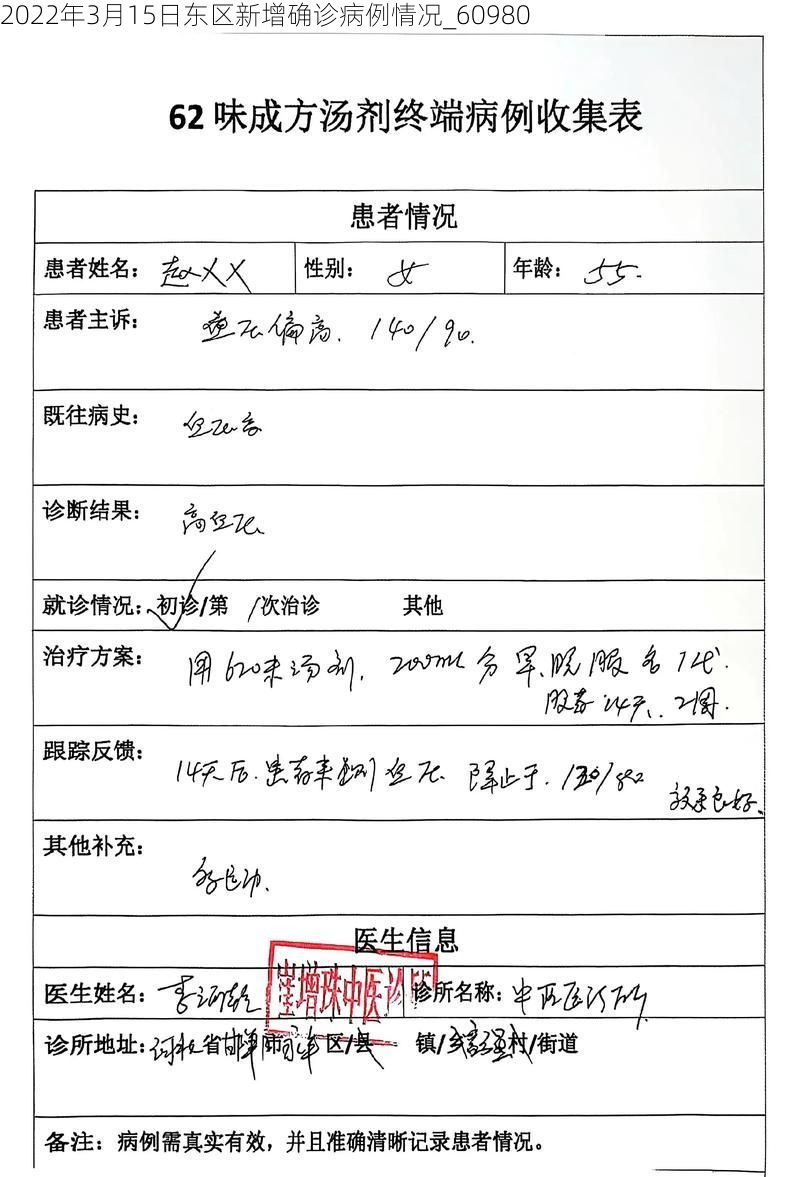 2022年3月15日东区新增确诊病例情况_60980
62味成方汤剂终端病例收集表
患者情况
患者姓名：赵XX 性别：女 年龄：55.
患者主诉：血压偏高.140/90.
既往病史：血压高
诊断结果：高血压
就诊情况：初诊/第 /次治诊 其他
治疗方案：用620末汤剂，200ml 分早、晚服各1代.
服药14天、2周.
跟踪反馈：14天后.患者来 血压 降止于.130/
效果良好.
其他补充：多运动.
医生信息
医生姓名：李 诊所名称：中医诊所
崔增珠中医诊所
诊所地址： 省邯郸市 区/县 镇/乡 村/街道
备注：病例需真实有效，并且准确清晰记录患者情况。